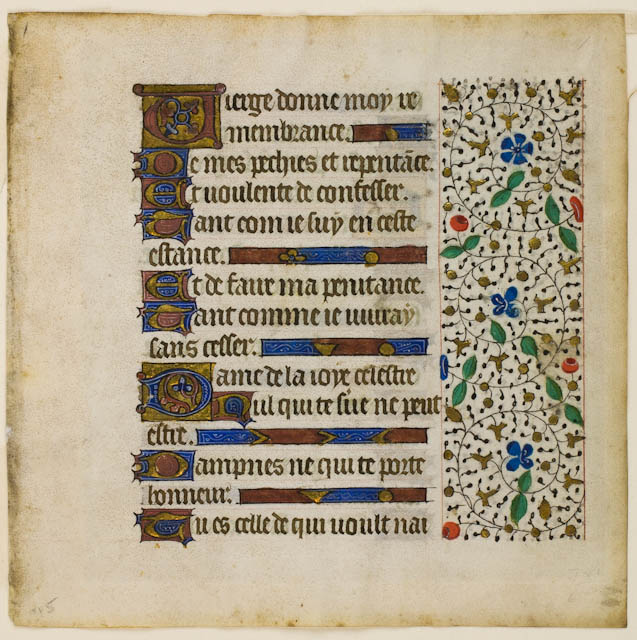 Vierge donne moy re
membrance.
De mes pechies et repentāce.
Et uoulente de confesser.
Tant com ie suy en ceste
estance.
Et de faire ma penitance.
Tant comme ie uiuray
sans cesser.
Dame de la ioye celestre
Nul qui te sue ne peut
estre.
Dampnes ne qui te porte
honneur.
Tu es celle de qui uoult nai